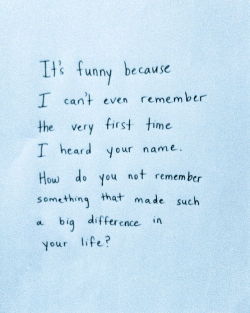 It's funny because
I can't even remember
the very first time
I heard your name.
How do you not remember
something that made such
a big difference in
your life?